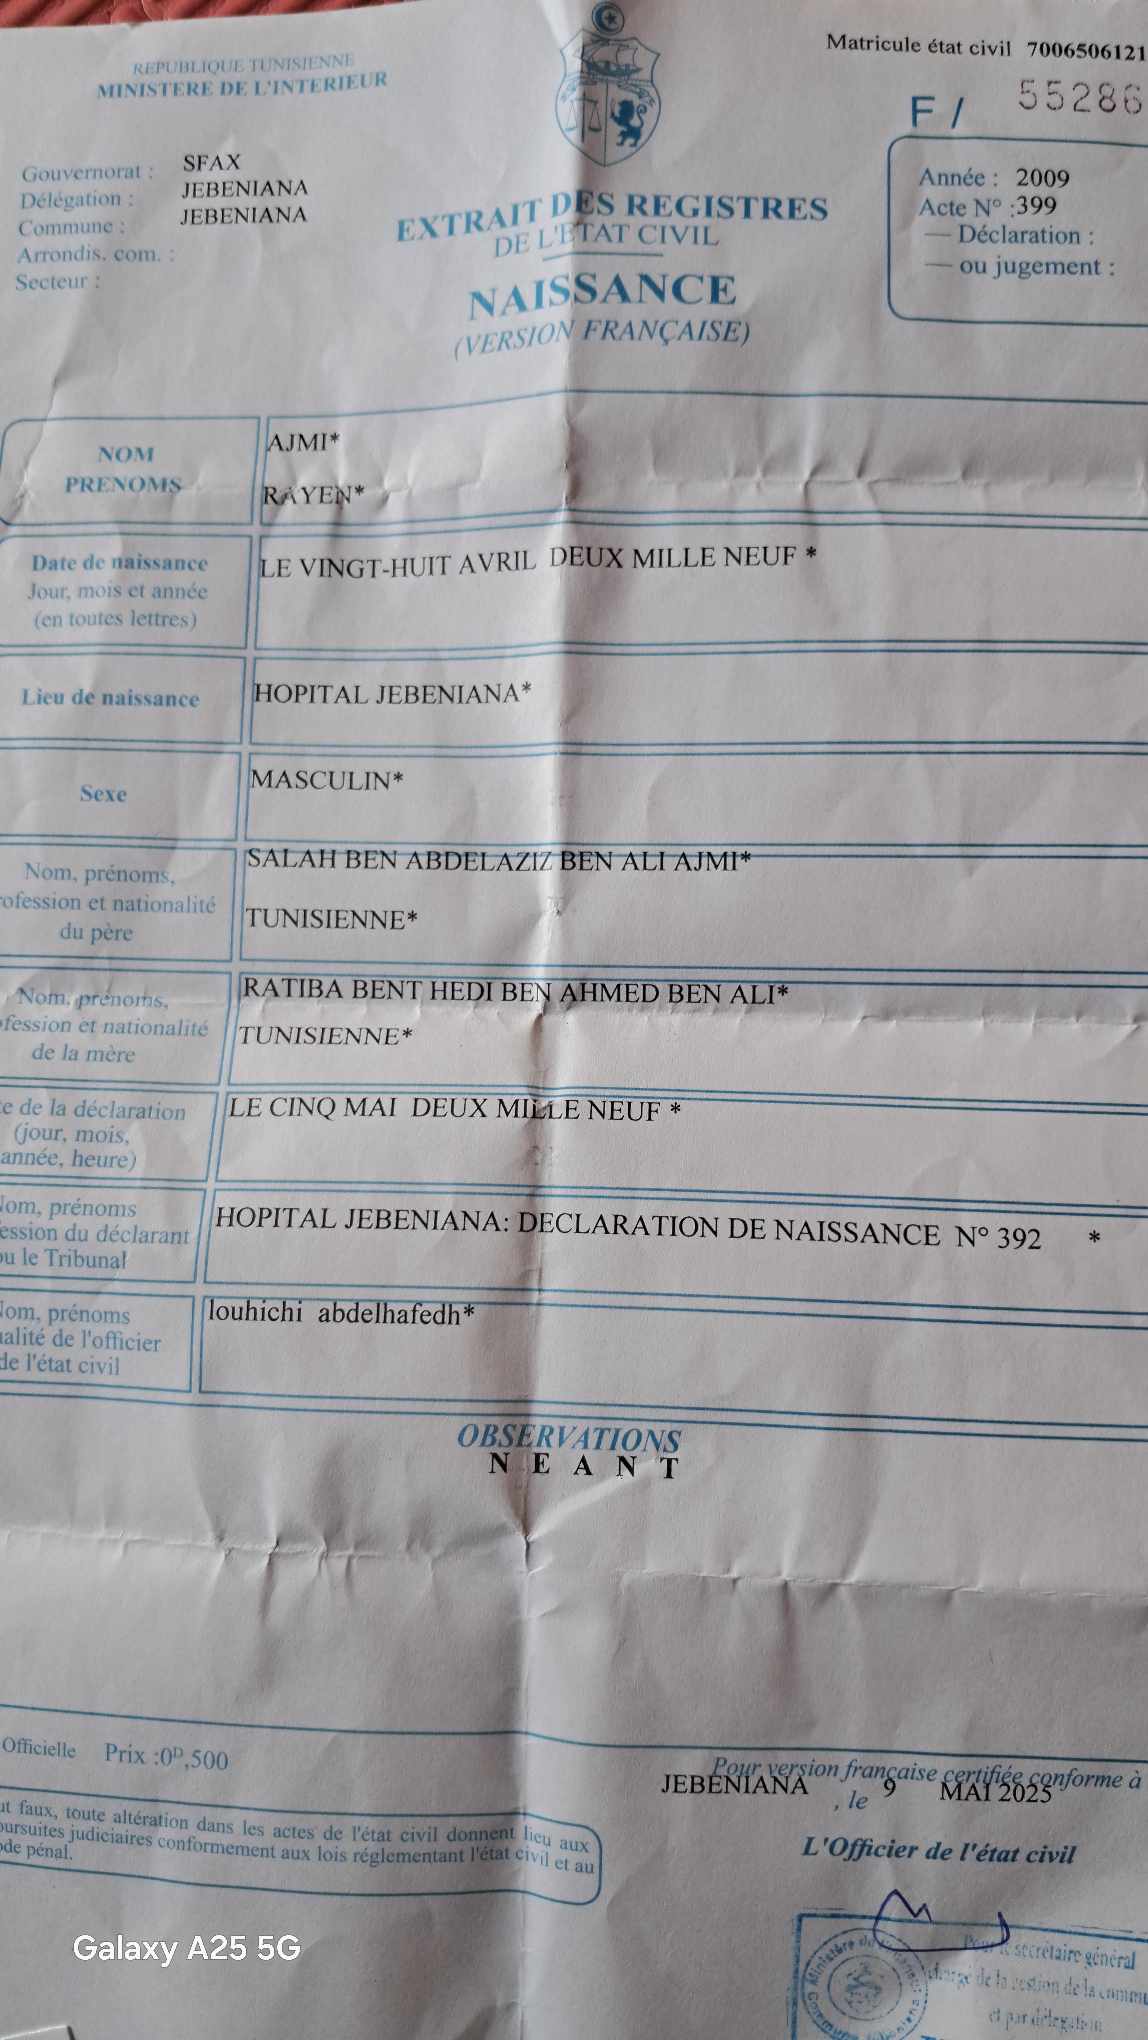 REPUBLIQUE TUNISIENNE
MINISTERE DE L'INTERIEUR
Matricule état civil 7006506121
F / 55286
Gouvernorat : SFAX
Délégation : JEBENIANA
Commune : JEBENIANA
Arrondis. com. :
Secteur :
EXTRAIT DES REGISTRES
DE L'ETAT CIVIL
NAISSANCE
(VERSION FRANÇAISE)
Année : 2009
Acte N° :399
— Déclaration :
— ou jugement :
NOM
PRENOMS
AJMI*
RAYEN*
Date de naissance
Jour, mois et année
(en toutes lettres)
LE VINGT-HUIT AVRIL DEUX MILLE NEUF *
Lieu de naissance
HOPITAL JEBENIANA*
Sexe
MASCULIN*
Nom, prénoms,
ofession et nationalité
du père
SALAH BEN ABDELAZIZ BEN ALI AJMI*
TUNISIENNE*
Nom, prénoms,
fession et nationalité
de la mère
RATIBA BENT HEDI BEN AHMED BEN ALI*
TUNISIENNE*
e de la déclaration
(jour, mois,
année, heure)
LE CINQ MAI DEUX MILLE NEUF *
Nom, prénoms
ession du déclarant
ou le Tribunal
HOPITAL JEBENIANA: DECLARATION DE NAISSANCE N° 392 *
Nom, prénoms
alité de l'officier
de l'état civil
louhichi abdelhafedh*
OBSERVATIONS
N E A N T
Officielle Prix :0D,500
ut faux, toute altération dans les actes de l'état civil donnent lieu aux
oursuites judiciaires conformement aux lois réglementant l'état civil et au
ode pénal.
Pour version française certifiée conforme à
JEBENIANA , le 9 MAI 2025
L'Officier de l'état civil
Pour le secrétaire général
chargé de la gestion de la commu
et par délégation
Galaxy A25 5G